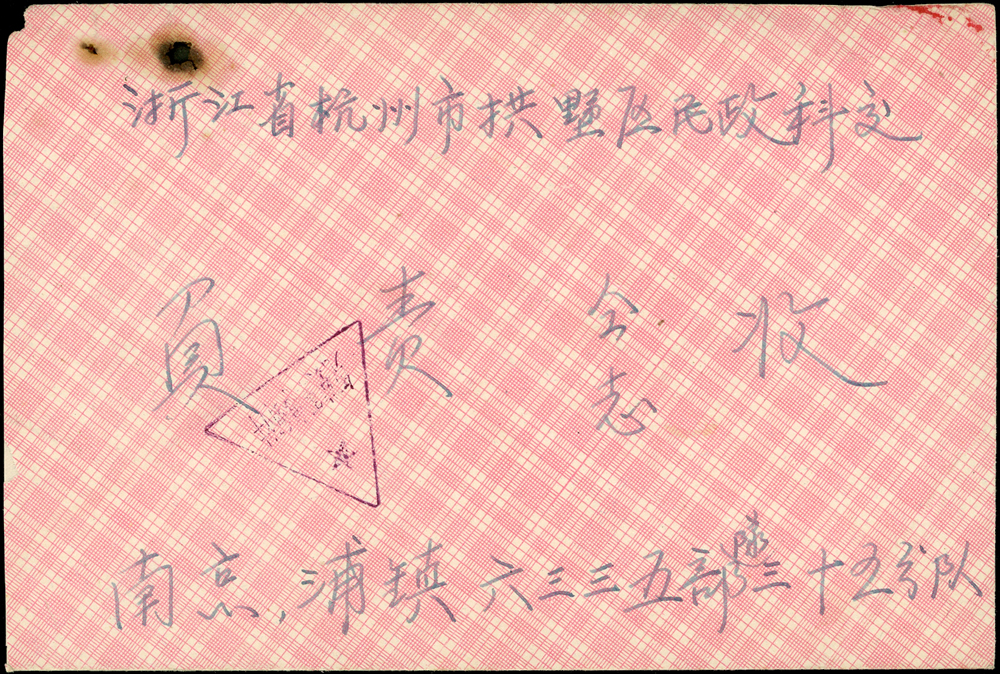 浙江省杭州市拱墅区民政科交
負责仝志收
南京,浦镇六三三五部隊三十五分队